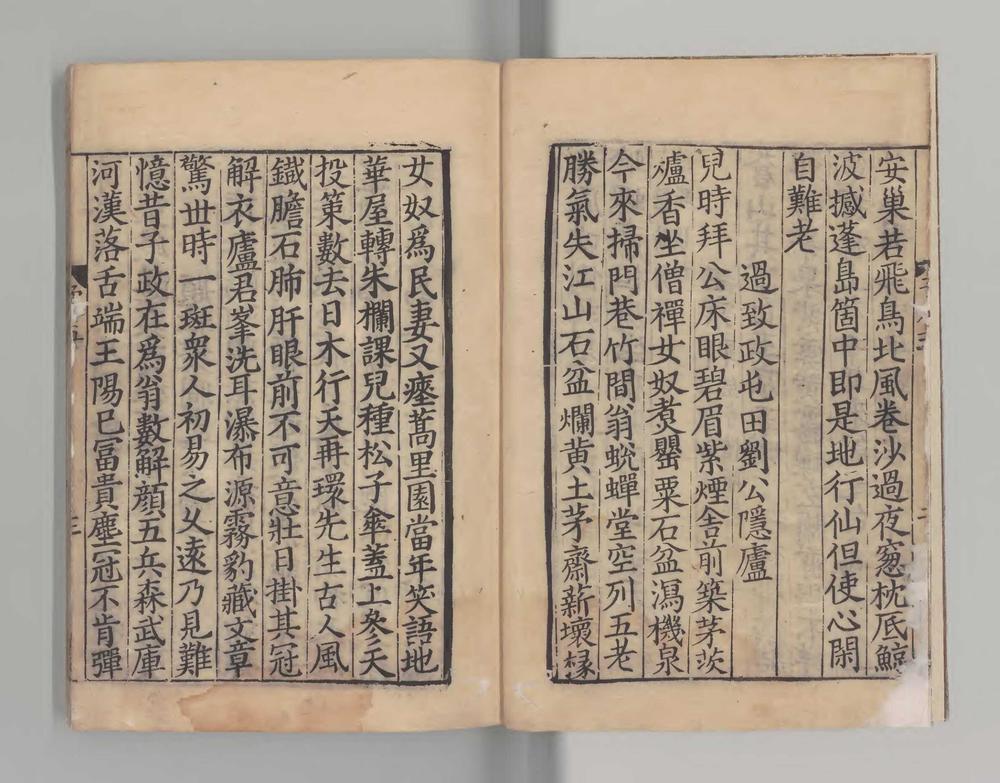 安巢若飛鳥北風卷沙過夜窻枕底鯨
波撼蓬島箇中即是地行仙但使心閑
自難老
過致政屯田劉公隱廬
兒時拜公床眼碧眉紫煙舎前築茅茨
爐香坐僧禪女奴煑罌粟石盆瀉機泉
今來掃門巷竹間翁蛻蟬堂空列五老
勝氣失江山石盆爛黄土茅齋薪壞椽
女奴爲民妻又瘞蒿里園當年笑語地
華屋轉朱欄課兒種松子傘蓋上參天
投筞數去日木行天再環先生古人風
鐵膽石肺肝眼前不可意壯日掛其冠
解衣廬君峯洗耳瀑布源霧豹藏文章
驚丗時一斑衆人初易之乆逺乃見難
憶昔子政在爲翁數解顔五兵森武庫
河漢落舌端王陽已冨貴塵冠不肯彈